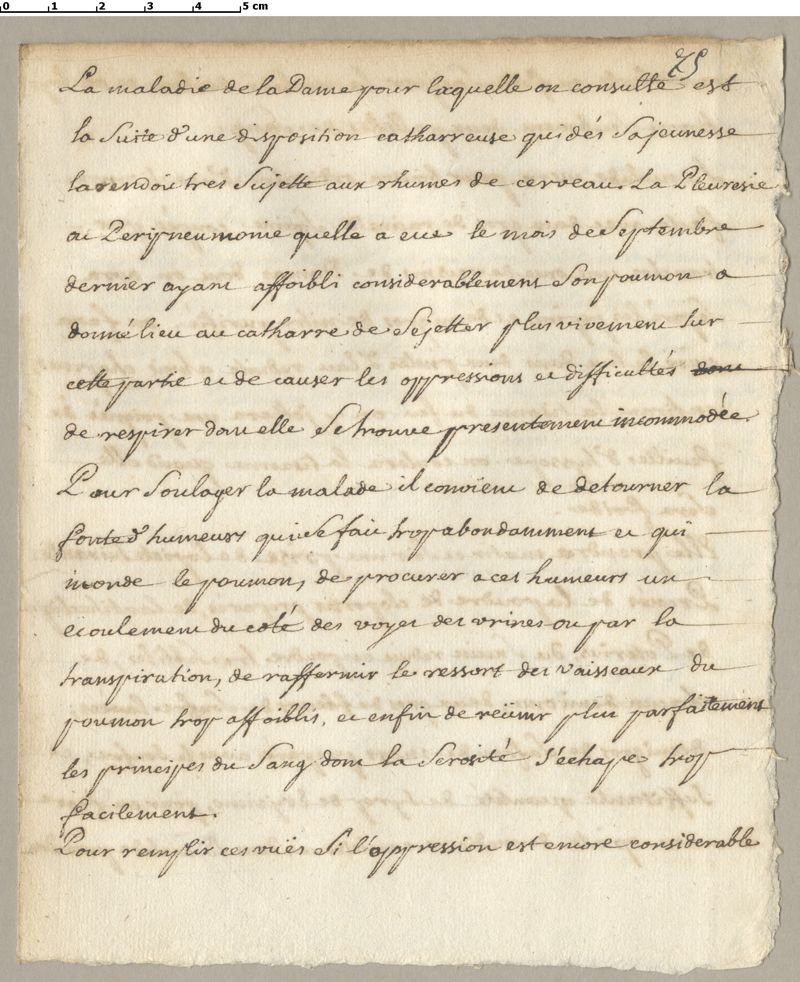 0 1 2 3 4 5 cm
75
La maladie de la Dame pour laquelle on consulte est
la Suite d'une disposition catharreuse qui dés Sa jeunesse
la rendoit tres Sujette aux rhumes de cerveau. La Pleuresie
ou Peripneumonie quelle a eue le mois de Septembre
dernier ayant affoibli considerablement Son poumon a
donné lieu au catharre de Se jetter plus vivement sur
cette partie et de causer les oppressions et difficultés dont
de respirer dont elle Se trouve presentement incommodée.
Pour Soulager la malade il convient de detourner la
fonte d'humeurs qui Se fait trop abondamment et qui
inonde le poumon, de procurer a ces humeurs un
ecoulement du coté des voyes des urines ou par la
transpiration, de raffermir le ressort des vaisseaux du
poumon trop affoiblis, et enfin de reünir plus parfaitement
les principes du Sang dont la Serosité s'echape trop
facilement.
Pour remplir ces vuës Si l'oppression est encore considerable